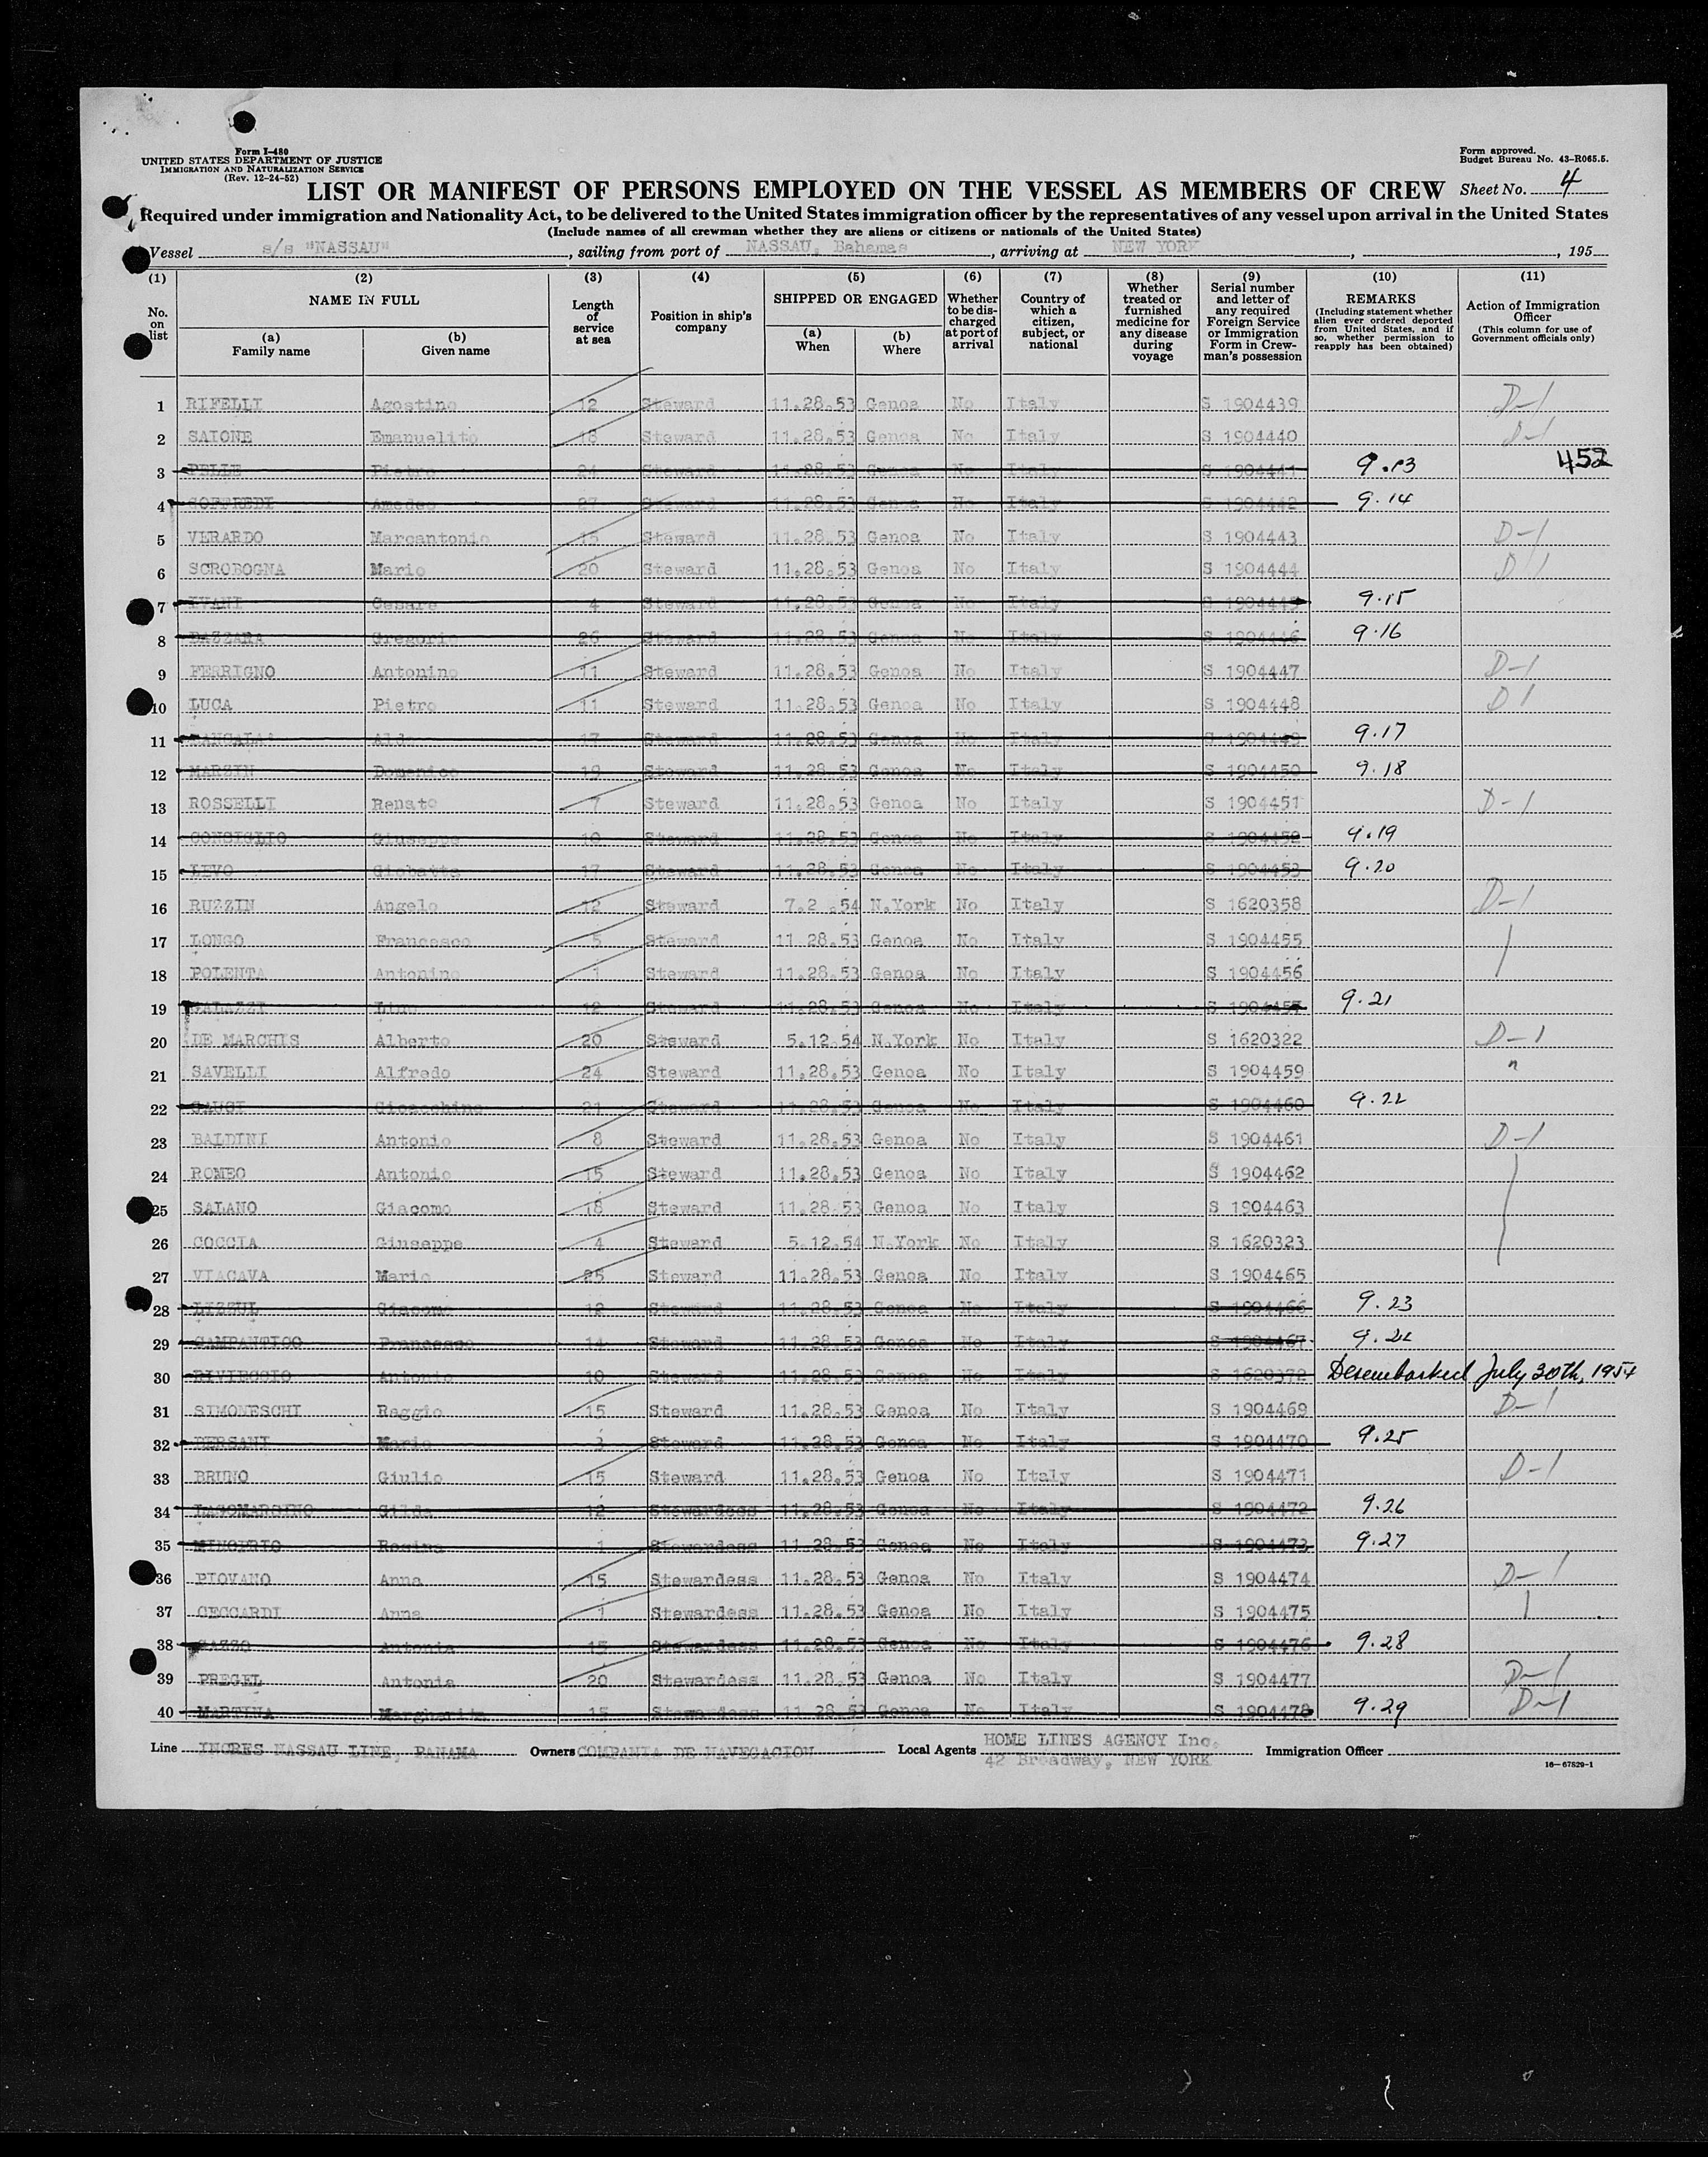 Form I-480
UNITED STATES DEPARTMENT OF JUSTICE
IMMIGRATION AND NATURALIZATION SERVICE
(Rev. 12-24-52)
Form approved.
Budget Bureau No. 43-R065.5.
LIST OR MANIFEST OF PERSONS EMPLOYED ON THE VESSEL AS MEMBERS OF CREW Sheet No. 4
Required under immigration and Nationality Act, to be delivered to the United States immigration officer by the representatives of any vessel upon arrival in the United States
(Include names of all crewman whether they are aliens or citizens or nationals of the United States)
Vessel s/s "NASSAU", sailing from port of NASSAU, Bahamas, arriving at NEW YORK, , 195
(1) (2) (3) (4) (5) (6) (7) (8) (9) (10) (11)
No. on list
NAME IN FULL
(a) Family name
(b) Given name
Length of service at sea
Position in ship's company
SHIPPED OR ENGAGED
(a) When
(b) Where
Whether to be discharged at port of arrival
Country of which a citizen, subject, or national
Whether treated or furnished medicine for any disease during voyage
Serial number and letter of any required Foreign Service or Immigration Form in Crewman's possession
REMARKS
(Including statement whether alien ever ordered deported from United States, and if so, whether permission to reapply has been obtained)
Action of Immigration Officer
(This column for use of Government officials only)
1 RIFELLI Agostino 12 Steward 11.28.53 Genoa No Italy S 1904439 D-1
2 SAIONE Emanuelito 18 Steward 11.28.53 Genoa No Italy S 1904440 D-1
3 PELLE Pietro 24 Steward 11.28.53 Genoa No Italy S 1904441 9.13 452
4 GOFFREDI Amedeo 27 Steward 11.28.53 Genoa No Italy S 1904442 9.14
5 VERARDO Marcantonio 15 Steward 11.28.53 Genoa No Italy S 1904443 D-1
6 SCROBOGNA Mario 20 Steward 11.28.53 Genoa No Italy S 1904444 D 1
7 IVANI Cesare 4 Steward 11.28.53 Genoa No Italy S 1904445 9.15
8 DAZZARA Gregorio 26 Steward 11.28.53 Genoa No Italy S 1904446 9.16
9 FERRIGNO Antonino 11 Steward 11.28.53 Genoa No Italy S 1904447 D-1
10 LUCA Pietro 11 Steward 11.28.53 Genoa No Italy S 1904448 D 1
11 Aldo 17 Steward 11.28.53 Genoa No Italy S 1904449 9.17
12 MARZIN Domenico 19 Steward 11.28.53 Genoa No Italy S 1904450 9.18
13 ROSSELLI Renato 7 Steward 11.28.53 Genoa No Italy S 1904451 D-1
14 CONSIGLIO Giuseppe 10 Steward 11.28.53 Genoa No Italy S 1904452 9.19
15 LEVO Giobatta 17 Steward 11.28.53 Genoa No Italy S 1904453 9.20
16 RUZZIN Angelo 12 Steward 7.2 .54 N.York No Italy S 1620358 D-1
17 LONGO Francesco 5 Steward 11.28.53 Genoa No Italy S 1904455
18 POLENTA Antonino 1 Steward 11.28.53 Genoa No Italy S 1904456
19 GALAZZI Lino 12 Steward 11.28.53 Genoa No Italy S 1904457 9.21
20 DE MARCHIS Alberto 20 Steward 5.12.54 N.York No Italy S 1620322 D-1
21 SAVELLI Alfredo 24 Steward 11.28.53 Genoa No Italy S 1904459 "
22 GAUCI Gioacchino 21 Steward 11.28.53 Genoa No Italy S 1904460 9.22
23 BALDINI Antonio 8 Steward 11.28.53 Genoa No Italy S 1904461 D-1
24 ROMEO Antonio 15 Steward 11.28.53 Genoa No Italy S 1904462
25 SALANO Giacomo 18 Steward 11.28.53 Genoa No Italy S 1904463
26 COCCIA Giuseppe 4 Steward 5.12.54 N.York No Italy S 1620323
27 VIACAVA Mario 25 Steward 11.28.53 Genoa No Italy S 1904465
28 LIZZUL Giacomo 12 Steward 11.28.53 Genoa No Italy S 1904466 9.23
29 CAMPANTICO Francesco 14 Steward 11.28.53 Genoa No Italy S 1904467 9.24
30 RIVIECCIO Antonio 10 Steward 11.28.53 Genoa No Italy S 1620372 Desembarked July 30th, 1954
31 SIMONESCHI Raggio 15 Steward 11.28.53 Genoa No Italy S 1904469 D-1
32 BERSANI Mario 3 Steward 11.28.53 Genoa No Italy S 1904470 9.25
33 BRUNO Giulio 15 Steward 11.28.53 Genoa No Italy S 1904471 D-1
34 LAGOMARSINO Gilda 12 Stewardess 11.28.53 Genoa No Italy S 1904472 9.26
35 MINOPRIO Rosina 1 Stewardess 11.28.53 Genoa No Italy S 1904473 9.27
36 PIOVANO Anna 15 Stewardess 11.28.53 Genoa No Italy S 1904474 D-1
37 CECCARDI Anna 1 Stewardess 11.28.53 Genoa No Italy S 1904475
38 Antonia 15 Stewardess 11.28.53 Genoa No Italy S 1904476 9.28
39 PREGEL Antonia 20 Stewardess 11.28.53 Genoa No Italy S 1904477 D-1
40 MARTINA Margherita 15 Stewardess 11.28.53 Genoa No Italy S 1904478 9.29 D-1
Line INCRES NASSAU LINE, PANAMA Owners COMPANIA DE NAVEGACION Local Agents HOME LINES AGENCY Inc. Immigration Officer
42 Broadway, NEW YORK
16—67829-1